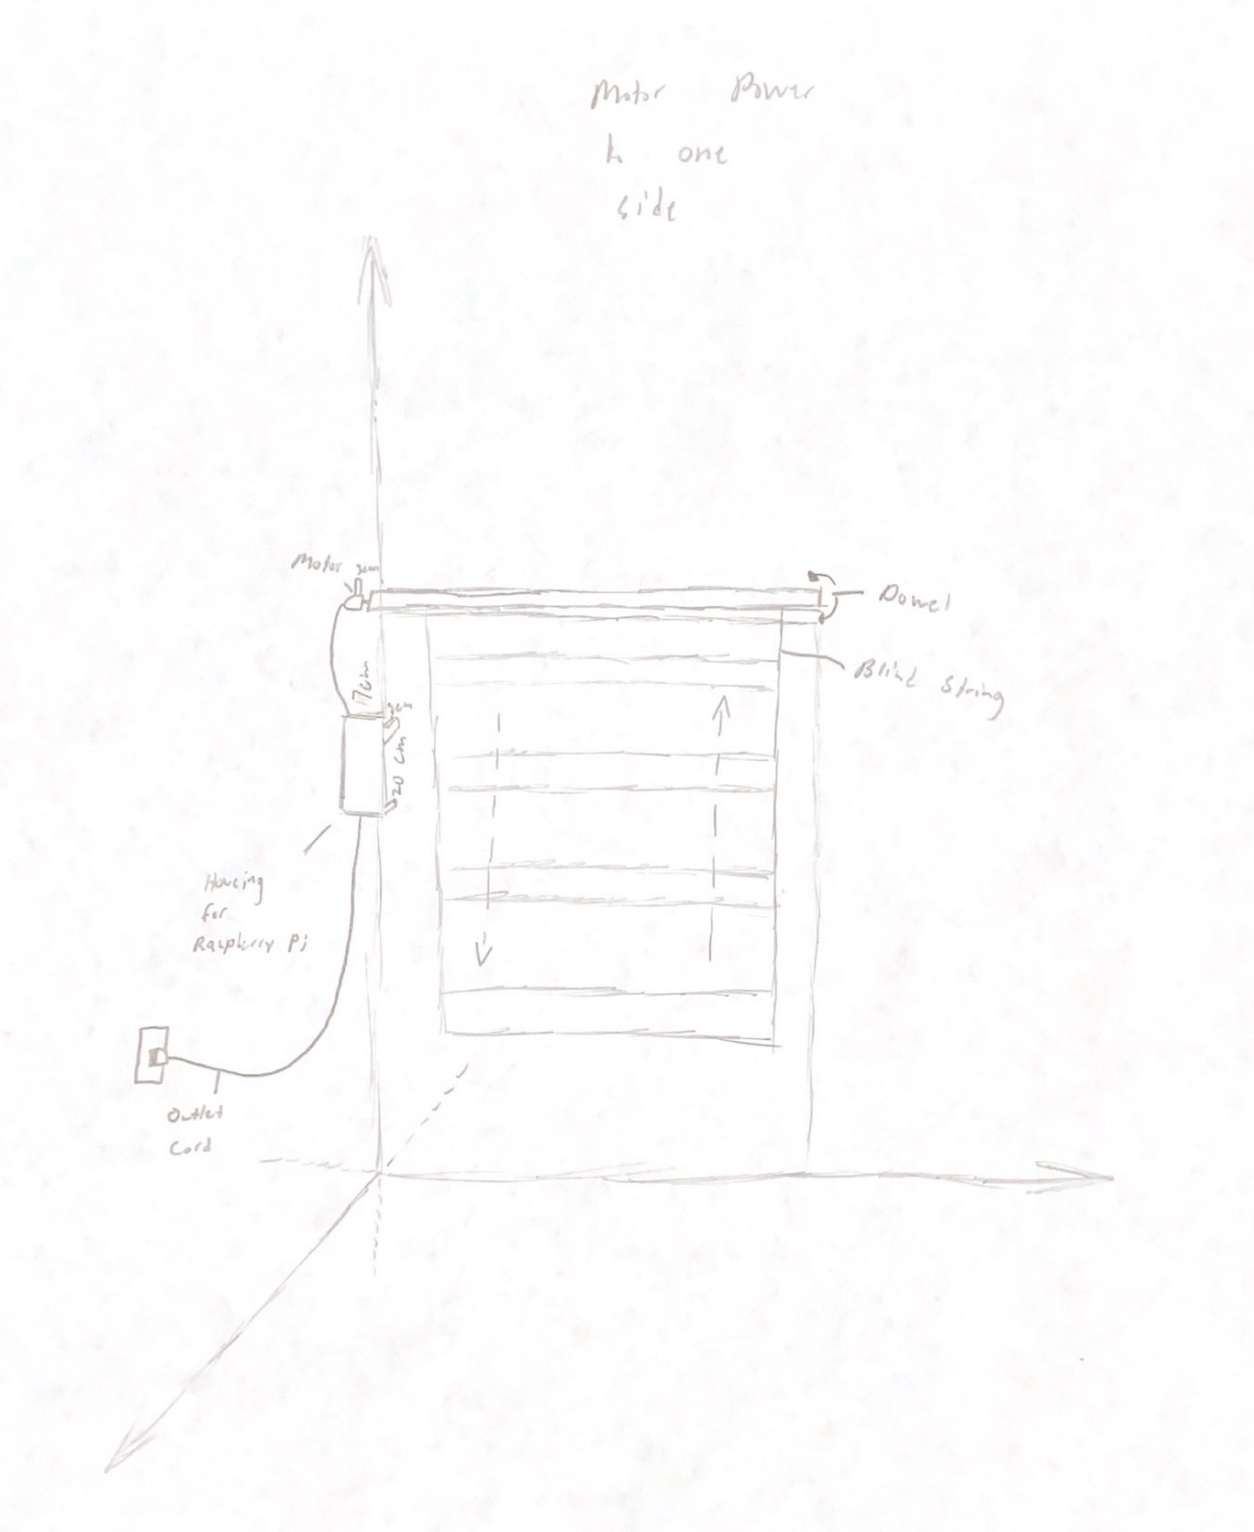 Motor Power
to one
side
Motor
Dowel
Blind String
17cm
20 cm
Housing
for
Raspberry Pi
Outlet
Cord